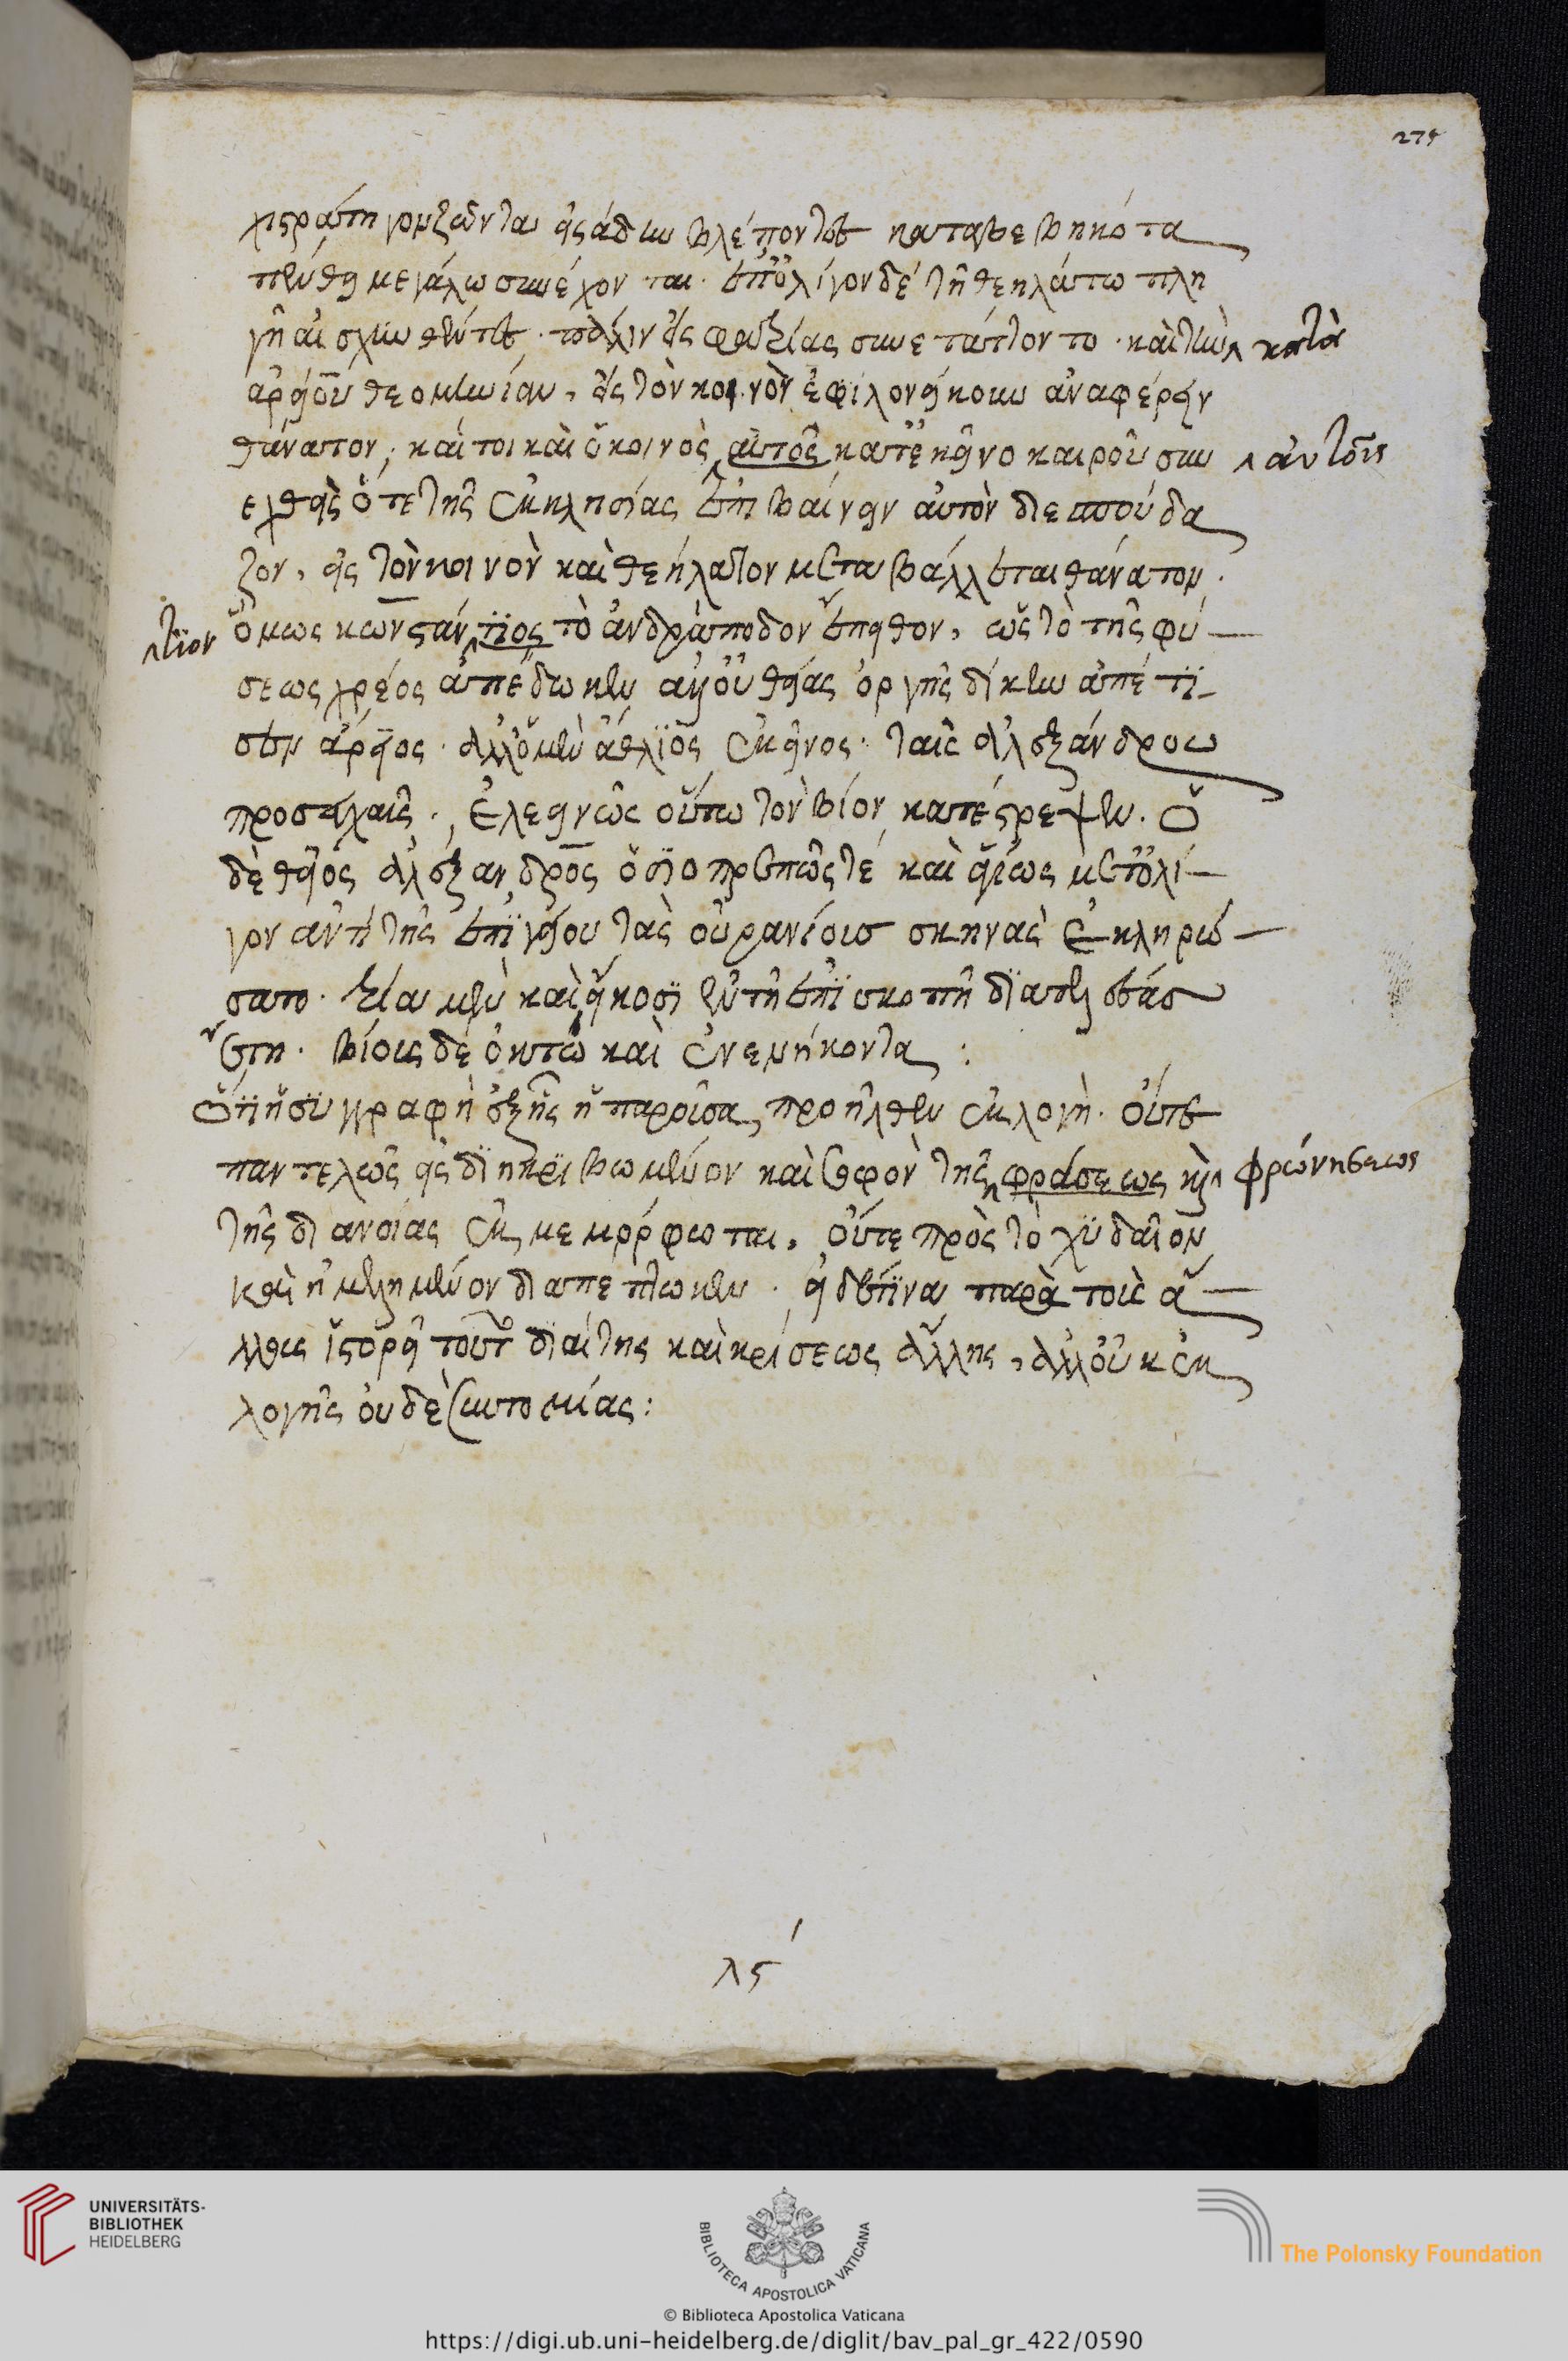 275
χιστράτηγον ζῶντα εἰς ἅδην βλέποντες καταβεβηκότα
πένθει μεγάλω συνέχονται. ἐπ' ὀλίγον δὲ τῆ θεηλάτω πλη
γῆ αἰσχυνθέντες, πάλιν εἰς φατρίας συνετάττοντο. καὶ τὴν ʌ κατὰ
ἀρείου θεομηνίαν, εἰς τὸν κοινὸν ἐφιλονείκουν ἀναφέρειν
θάνατον, καίτοι καὶ ὁ κοινὸς αὐτὸς κατ' ἐκεῖνο καιροῦ συν ʌ αὐτοῖς
ελθεῖν ὅτε τῆς ἐκκλησίας ἐπιβαίνειν αὐτὸν διεσπούδα
ζον, εἰς τὸν κοινὸν καὶ θεήλατον μεταβάλλεται θάνατον.
ʌ τῖον ὅμως κωνστάντϊος τὸ ἀνδράποδον ἔπειθον, ὡς τὸ τῆς φύ
σεως χρέος ἀπέδωκεν ἀλλ' οὐ θείας ὀργῆς δίκην ἀπέτϊ
σεν ἄρειος. ἀλλ' ὁ μὲν ἄθλϊος ἐκεῖνος ταῖς ἀλεξάνδρου
προσευχαῖς, ἐλεεινῶς οὕτω τὸν βίον κατέστρεψεν. ὁ
δὲ θεῖος ἀλέξανδρος ὁσϊοπρεπῶς τὲ καὶ θείως μετ' ὀλί
γον ἀντὶ τῆς ἐπϊγείου τὰς οὐρανίους σκηνὰς ἐκληρώ
σατο. τρία μὲν καὶ εἴκοσϊ ἐν τῆ ἐπϊσκοπῆ δϊαπρέψας
ἔτη. βίους δὲ ὀκτὼ καὶ ἐνενήκοντα:
ὅτϊ ἡ συγγραφὴ ἐξῆς ἡ παροῦσα, προῆλθεν ἐκλογή. οὔτε
παντελῶς εἰς δϊηκρϊβωμένον καὶ σοφὸν τῆς φράσεως καὶ ʌ φρώνησεως
τῆς διανοίας ἐκμεμόρφωται, οὔτε πρὸς τὸ χϋδαῖον
καὶ ἠμελημένον διαπέπτωκεν. εἰ δέ τϊνα παρὰ τοῖς ἄ
λλοις ἱστορεῖ τοῦτο διαίτης καὶ κρίσεως ἄλλης, ἀλλ' οὐκ ἐκ
λογῆς οὐδὲ συντομίας:
λς΄
UNIVERSITÄTS-
BIBLIOTHEK
HEIDELBERG
BIBLIOTECA APOSTOLICA VATICANA
The Polonsky Foundation
© Biblioteca Apostolica Vaticana
https://digi.ub.uni-heidelberg.de/diglit/bav_pal_gr_422/0590